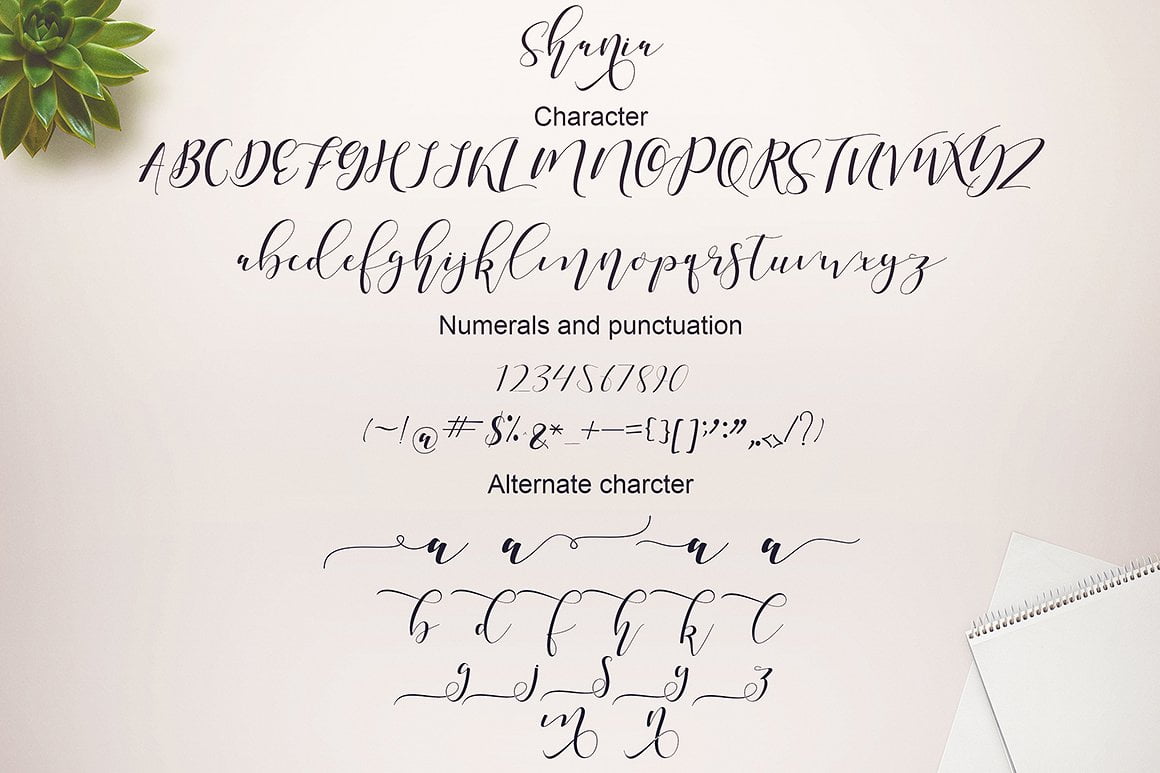 Shania
Character
ABCDEFGHIJKLMNOPQRSTUVWXYZ
abcdefghijklmnopqrstuvwxyz
Numerals and punctuation
1234567890
(~!@#$%&*_+-={}[];':"",.<>/?)
Alternate charcter
a a a a
b d f h k l
g j s y z
m n